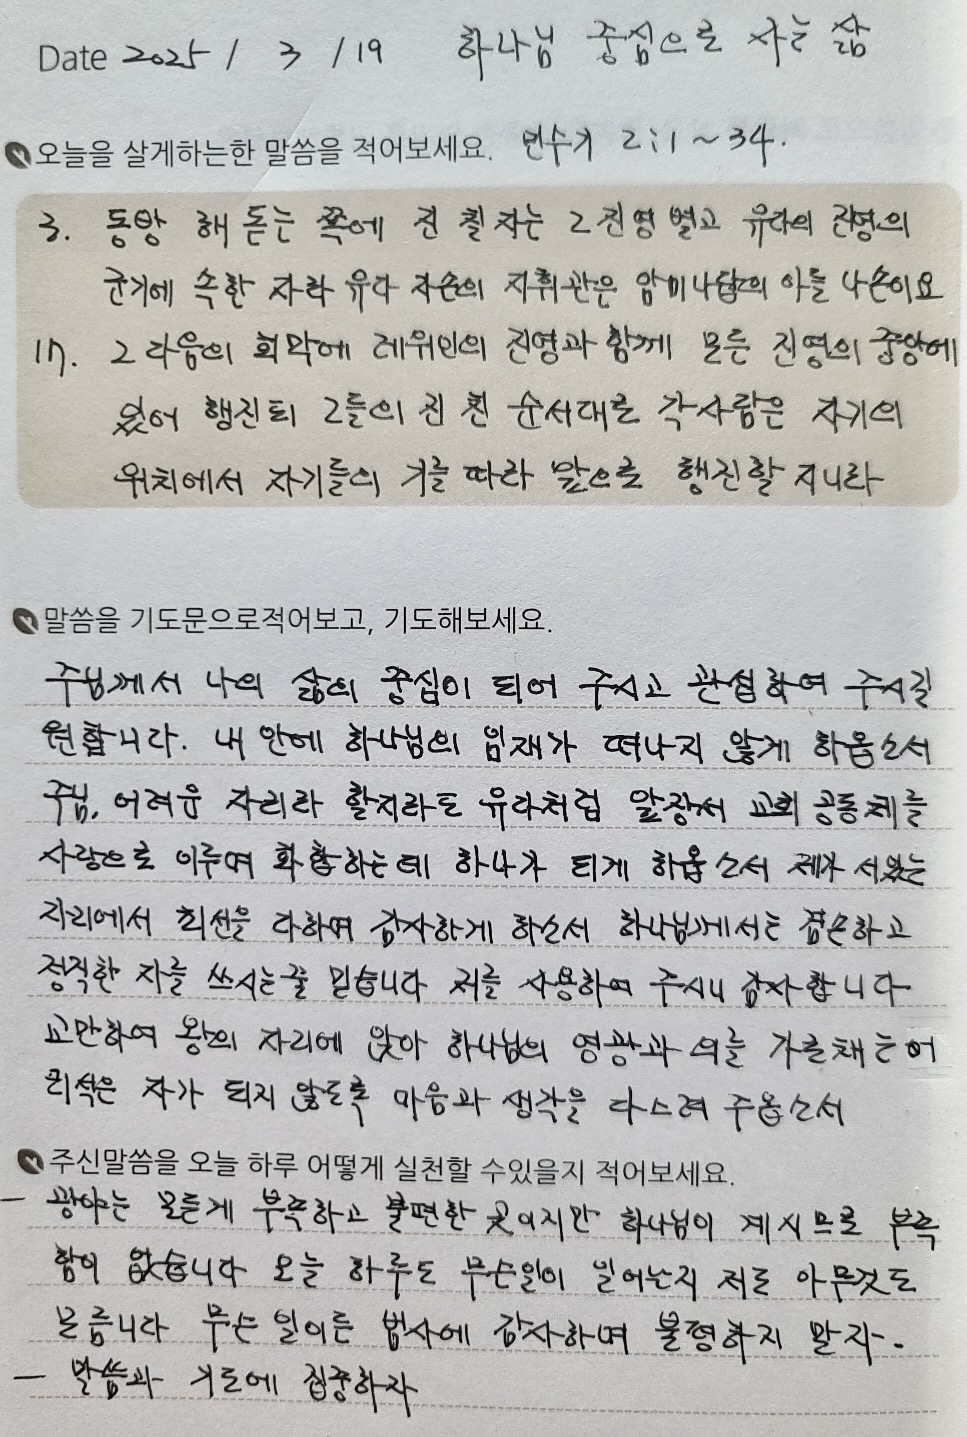 Date 2025 / 3 / 19 하나님 중심으로 사는 삶
오늘을 살게하는한 말씀을 적어보세요. 민수기 2:1~34.
3. 동방 해 돋는 쪽에 진 칠 자는 그 진영별고 유다의 진영의
군기에 속한 자라 유다 자손의 지휘관은 암미나답의 아들 나손이요
17. 그 다음의 회막에 레위인의 진영과 함께 모든 진영의 중앙에
있어 행진되 그들의 진 친 순서대로 각사람은 자기의
위치에서 자기들의 기를 따라 앞으로 행진할 지니라
말씀을 기도문으로적어보고, 기도해보세요.
주님께서 나의 삶의 중심이 되어 주시고 관섭하여 주시길
원합니다. 내 안에 하나님의 임재가 떠나지 않게 하옵소서
주님, 어려운 자리라 할지라도 유다처럼 앞장서 교회 공동체를
사랑으로 이루며 화합하는데 하나가 되게 하옵소서 제가 서있는
자리에서 최선을 다하며 감사하게 하소서 하나님께서는 겸손하고
정직한 자를 쓰시는줄 믿습니다 저를 사용하여 주시니 감사합니다
교만하여 왕의 자리에 앉아 하나님의 영광과 의를 가로채는 어
리석은 자가 되지 않도록 마음과 생각을 다스려 주옵소서
주신말씀을 오늘 하루 어떻게 실천할 수있을지 적어보세요.
- 광야는 모든게 부족하고 불편한 곳이지만 하나님이 계시므로 부족
함이 없습니다 오늘 하루도 무슨일이 일어는지 저도 아무것도
모릅니다 무슨 일이든 범사에 감사하며 불평하지 말자.
- 말씀과 기도에 집중하자